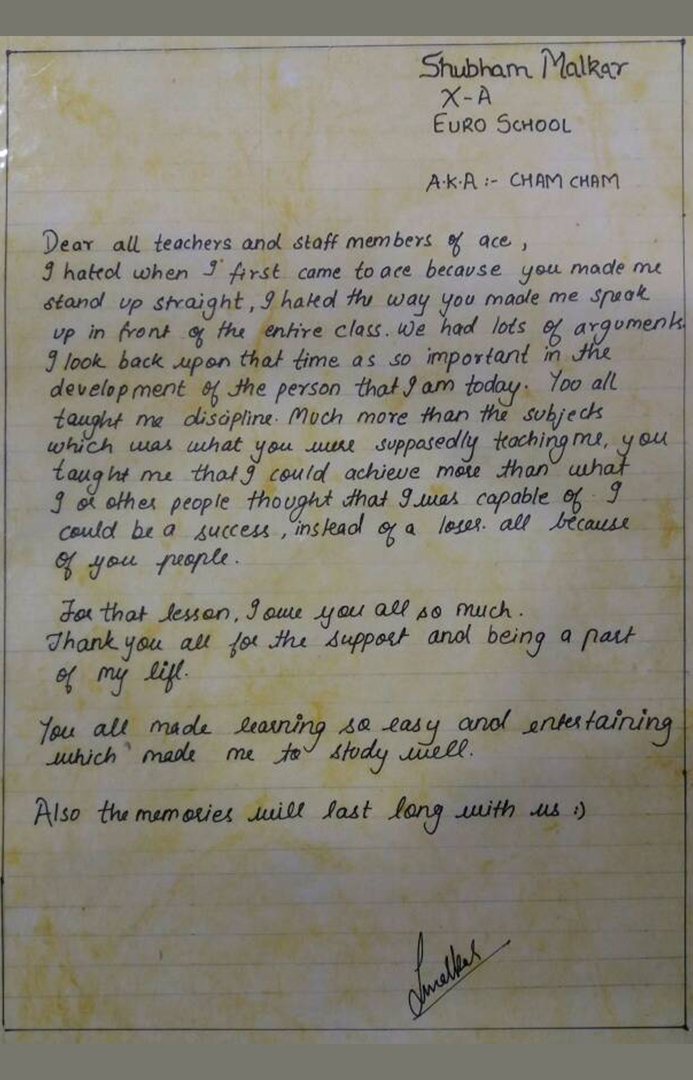 Shubham Malkar
X-A
EURO SCHOOL
A.K.A :- CHAM CHAM
Dear all teachers and staff members of ace,
I hated when I first came to ace because you made me
stand up straight, I hated the way you made me speak
up in front of the entire class. We had lots of arguments.
I look back upon that time as so important in the
development of the person that I am today. Yoo all
taught me discipline. Much more than the subjects
which was what you were supposedly teaching me, you
taught me that I could achieve more than what
I or other people thought that I was capable of. I
could be a success, instead of a loser. all because
of you people.
For that lesson, I owe you all so much.
Thank you all for the support and being a part
of my life.
You all made learning so easy and entertaining
which made me to study well.
Also the memories will last long with us :)
Smalkar